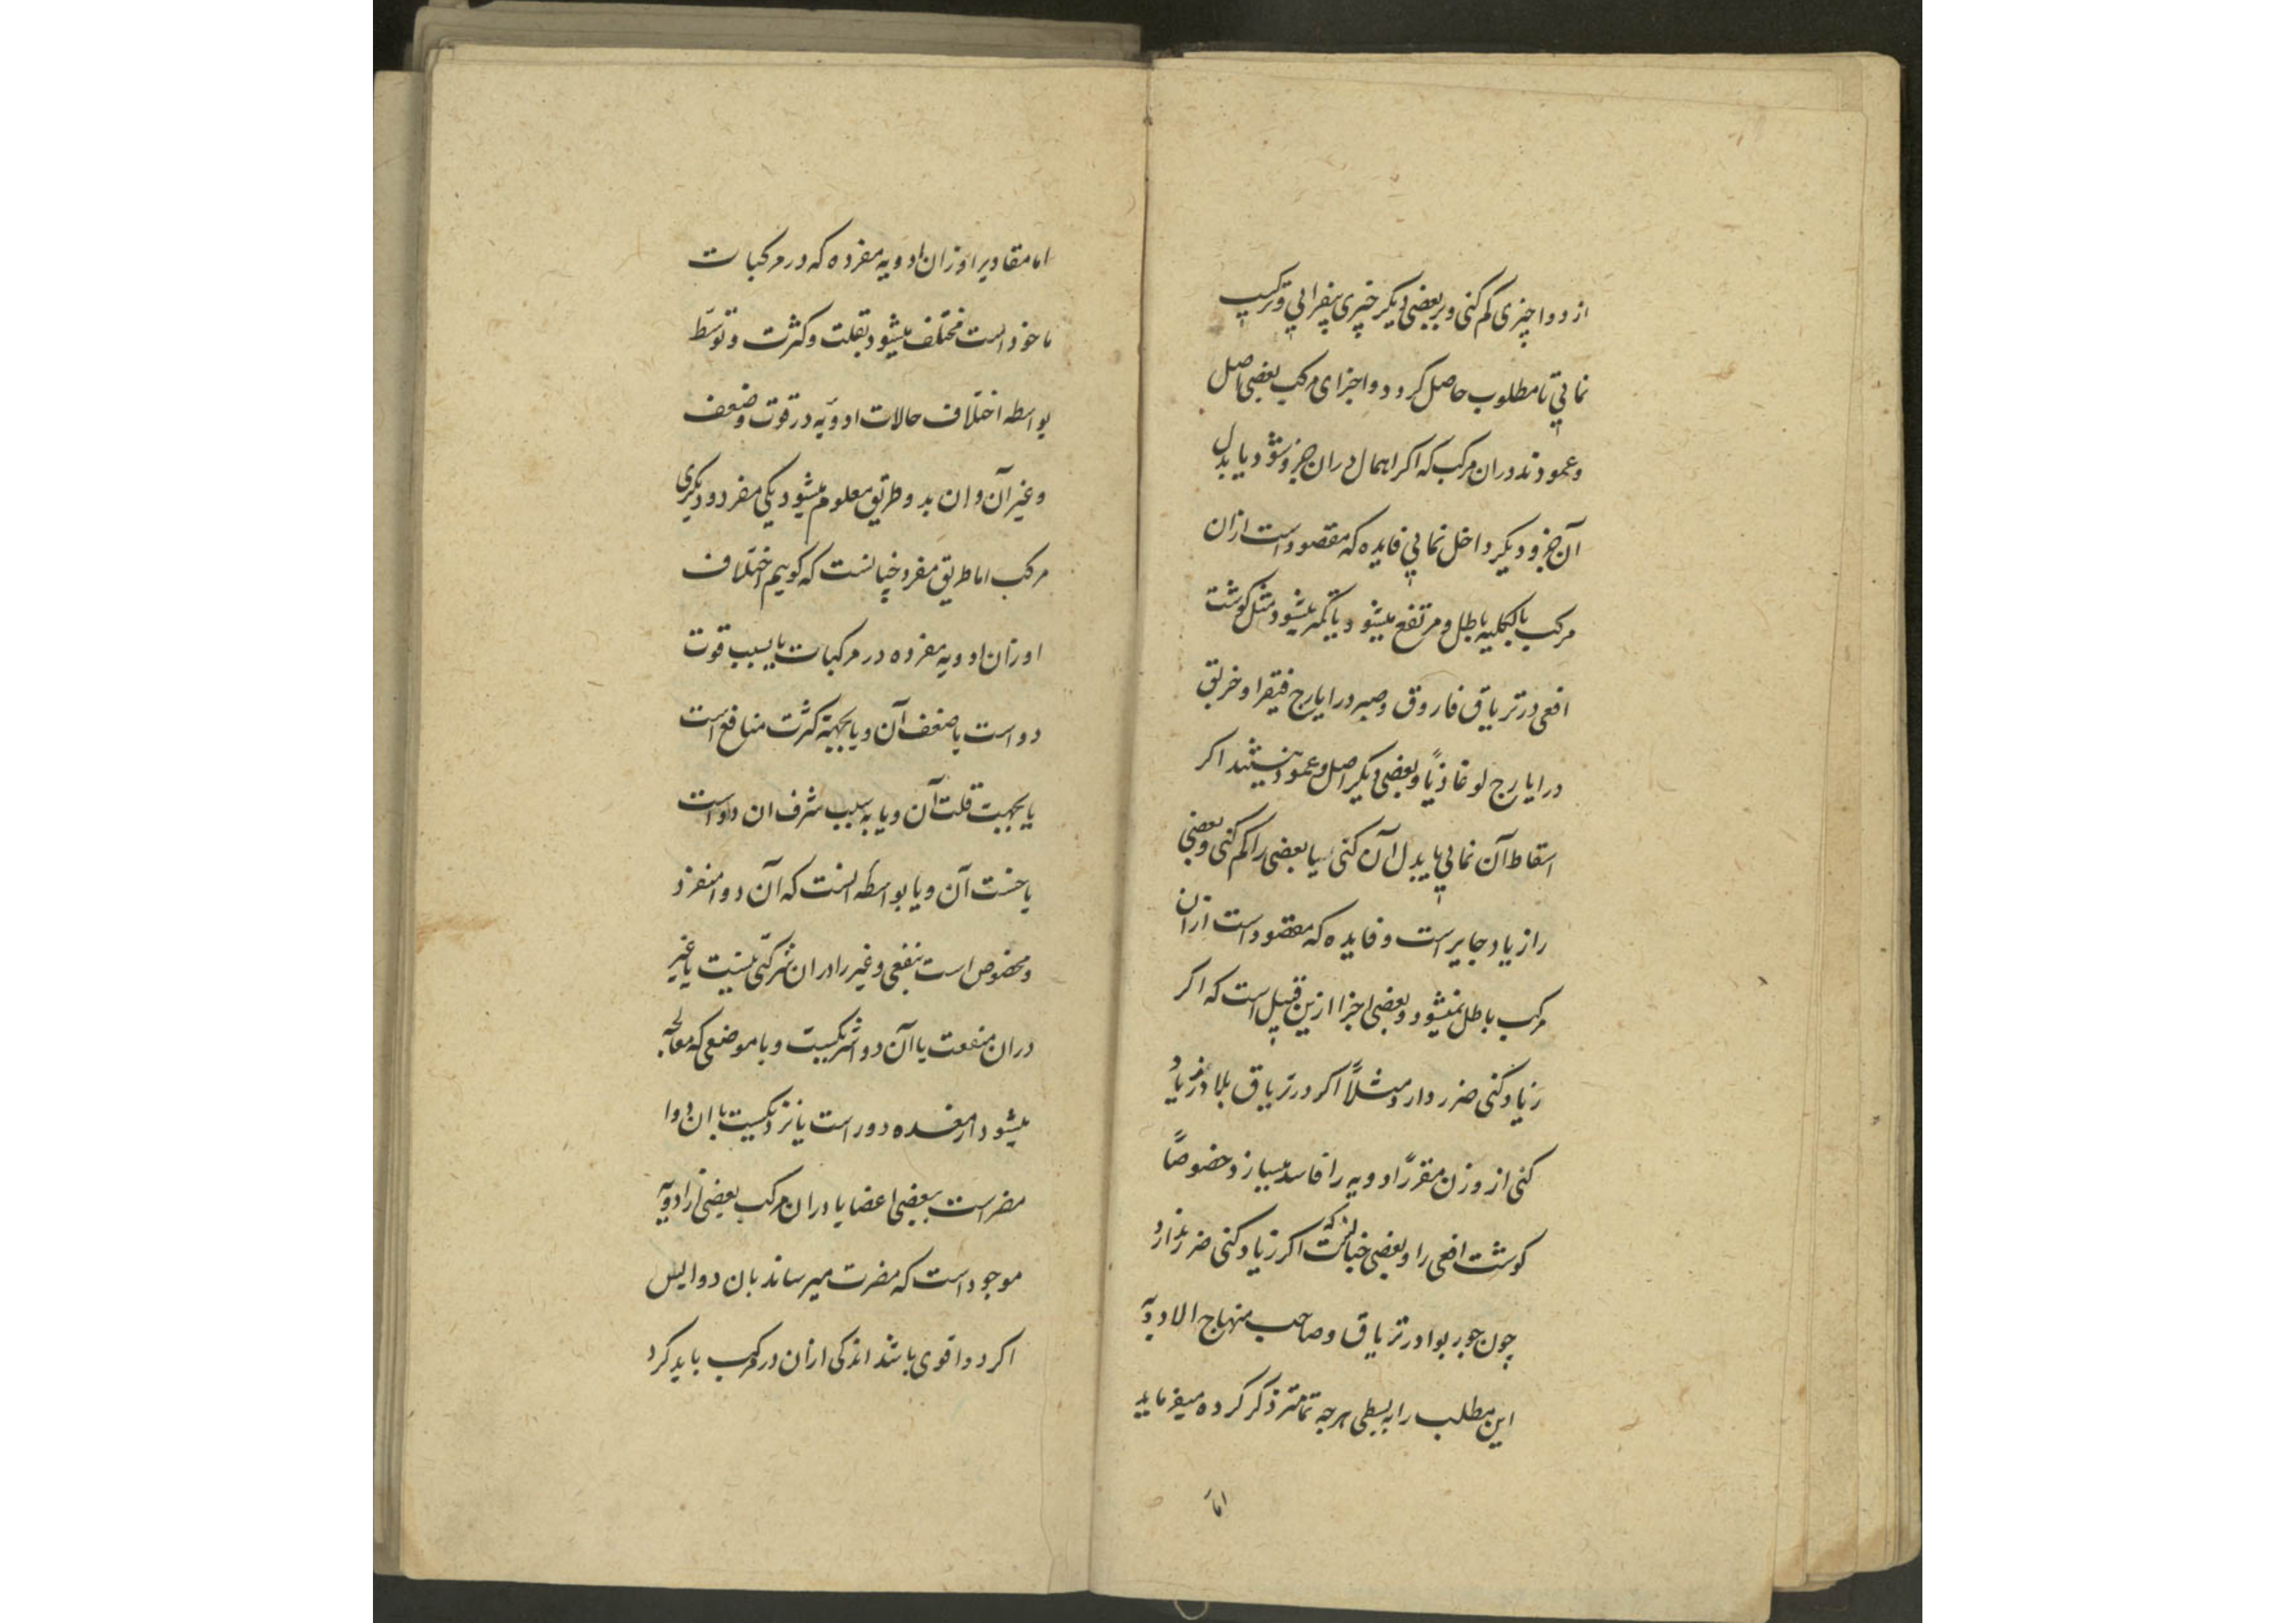 از دوا چیزی کم کنی و بر بعضی دیکر چیزی بیفزایی و ترکیب
نمایی تا مطلوب حاصل کردد و اجزای مرکب بعضی اصل
و عمودند دران مرکب که اکر اهمال دران جزو شود یا بدل
آن جزو دیکر داخل نمایی فایده که مقصود است ازان
مرکب بالکلیه باطل و مرتفع میشود یا کم میشود مثل کوشت
افعی در تریاق فاروق و صبر در ایارج فیقرا و خربق
در ایارج لوغاذیا و بعضی دیکر اصل و عمود نیستند اکر
اسقاط آن نمایی یا بدل آن کنی یا بعضی را کم کنی و بعضی
را زیاد جایز است و فایده که مقصود است ازان
مرکب باطل نمیشود و بعضی اجزا ازین قبیل است که اکر
زیاد کنی ضرر دارد مثلاً اکر در تریاق بلادر زیاد
کنی از وزن مقرر ادویه را فاسد میسازد خصوصاً
کوشت افعی را و بعضی چنانست که اکر زیاد کنی ضرر ندارد
چون جوزبوا در تریاق و صاحب منهاج الادویه
این مطلب را به بسطی هرچه تمامتر ذکر کرده میفرماید
اما
اما مقادیر اوزان ادویه مفرده که در مرکبات
ماخوذ است مختلف میشود بقلت و کثرت و توسّط
بواسطه اختلاف حالات ادویه در قوت و ضعف
و غیر آن و ان بدو طریق معلوم میشود یکی مفرد و دیکری
مرکب اما طریق مفرد چنانست که کوییم اختلاف
اوزان ادویه مفرده در مرکبات یا بسبب قوت
دواست یا ضعف آن و یا بجهة کثرت منافع است
یا بجهت قلت آن و یا به سبب شرف ان دواست
یا خست آن و یا بواسطه انست که آن دوا منفرد
و مخصوص است بنفعی و غیر را دران شرکتی نیست یا غیر
دران منفعت با آن دوا شریکست و یا موضعی که معالجه
میشود از معده دور است یا نزدیکست یا ان دوا
مضر است ببعضی اعضا یا دران مرکب بعضی از ادویه
موجود است که مضرت میرساند بان دوا پس
اکر دوا قوی باشد اندکی ازان در مرکب باید کرد